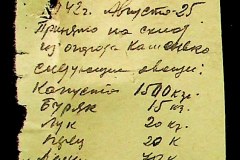 1942г. Августа-25
Принято на склад
из огорода Кашенько
следующие овощи:
Капуста 1500 кг.
Буряк 15 кг.
Лук 20 кг.
Перец 20 к